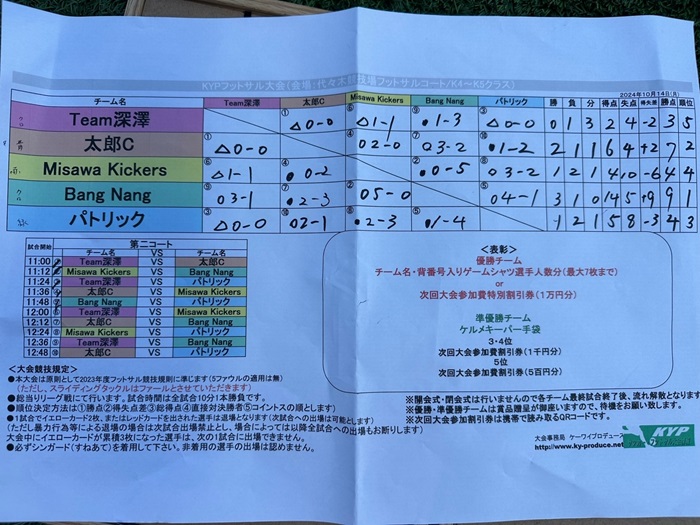 KYPフットサル大会(会場:代々木競技場フットサルコート/K4〜K5クラス)
2024年10月14日(月)
チーム名 Team深澤 太郎C Misawa Kickers Bang Nang パトリック 勝 負 分 得点 失点 得失差 勝点 順位
Team深澤 ① △0-0 ⑥ △1-1 ⑨ ●1-3 ③ △0-0 0 1 3 2 4 -2 3 5
太郎C ① △0-0 ④ ○2-0 ⑦ ○3-2 ⑩ ●1-2 2 1 1 6 4 +2 7 2
Misawa Kickers ⑥ △1-1 ④ ●0-2 ② ●0-5 ⑧ ○3-2 1 2 1 4 10 -6 4 4
Bang Nang ⑨ ○3-1 ⑦ ●2-3 ② ○5-0 ⑤ ○4-1 3 1 0 14 5 +9 9 1
パトリック ③ △0-0 ⑩ ○2-1 ⑧ ●2-3 ⑤ ●1-4 1 2 1 5 8 -3 4 3
試合開始 第二コート
チーム名 VS チーム名
11:00 Team深澤 VS 太郎C
11:12 Misawa Kickers VS Bang Nang
11:24 Team深澤 VS パトリック
11:36 太郎C VS Misawa Kickers
11:48 Bang Nang VS パトリック
12:00 Team深澤 VS Misawa Kickers
12:12 太郎C VS Bang Nang
12:24 Misawa Kickers VS パトリック
12:36 Team深澤 VS Bang Nang
12:48 太郎C VS パトリック
<表彰>
優勝チーム
チーム名・背番号入りゲームシャツ選手人数分(最大7枚まで)
or
次回大会参加費特別割引券(1万円分)
準優勝チーム
ケルメキーパー手袋
3・4位
次回大会参加費割引券(1千円分)
5位
次回大会参加費割引券(5百円分)
<大会競技規定>
●本大会は原則として2023年度フットサル競技規則に準じます(5ファウルの適用は無)
(ただし、スライディングタックルはファールとさせていただきます)
●総当りリーグ戦にて行います。試合時間は全試合10分1本勝負です。
●順位決定方法は①勝点②得失点差③総得点④直接対決勝者⑤コイントスの順とします)
●1試合でイエローカード2枚、またはレッドカードを出された選手は退場となります(次試合への出場は可能とします)
(ただし暴力行為等による退場の場合は次試合出場禁止とし、場合によっては以降全試合への出場もお断りします)
大会中にイエローカードが累積3枚になった選手は、次の1試合に出場できません。
●必ずシンガード(すねあて)を着用して下さい。非着用の選手の出場は認めません。
※開会式・閉会式は行いませんので各チーム最終試合終了後、流れ解散となります。
※優勝・準優勝チームは賞品贈呈が御座いますので、待機をお願い致します。
※次回大会参加費割引券は携帯で読み取るQRコードです。
大会事務局 ケーワイプロデュース
http://www.ky-produce.net
KYP